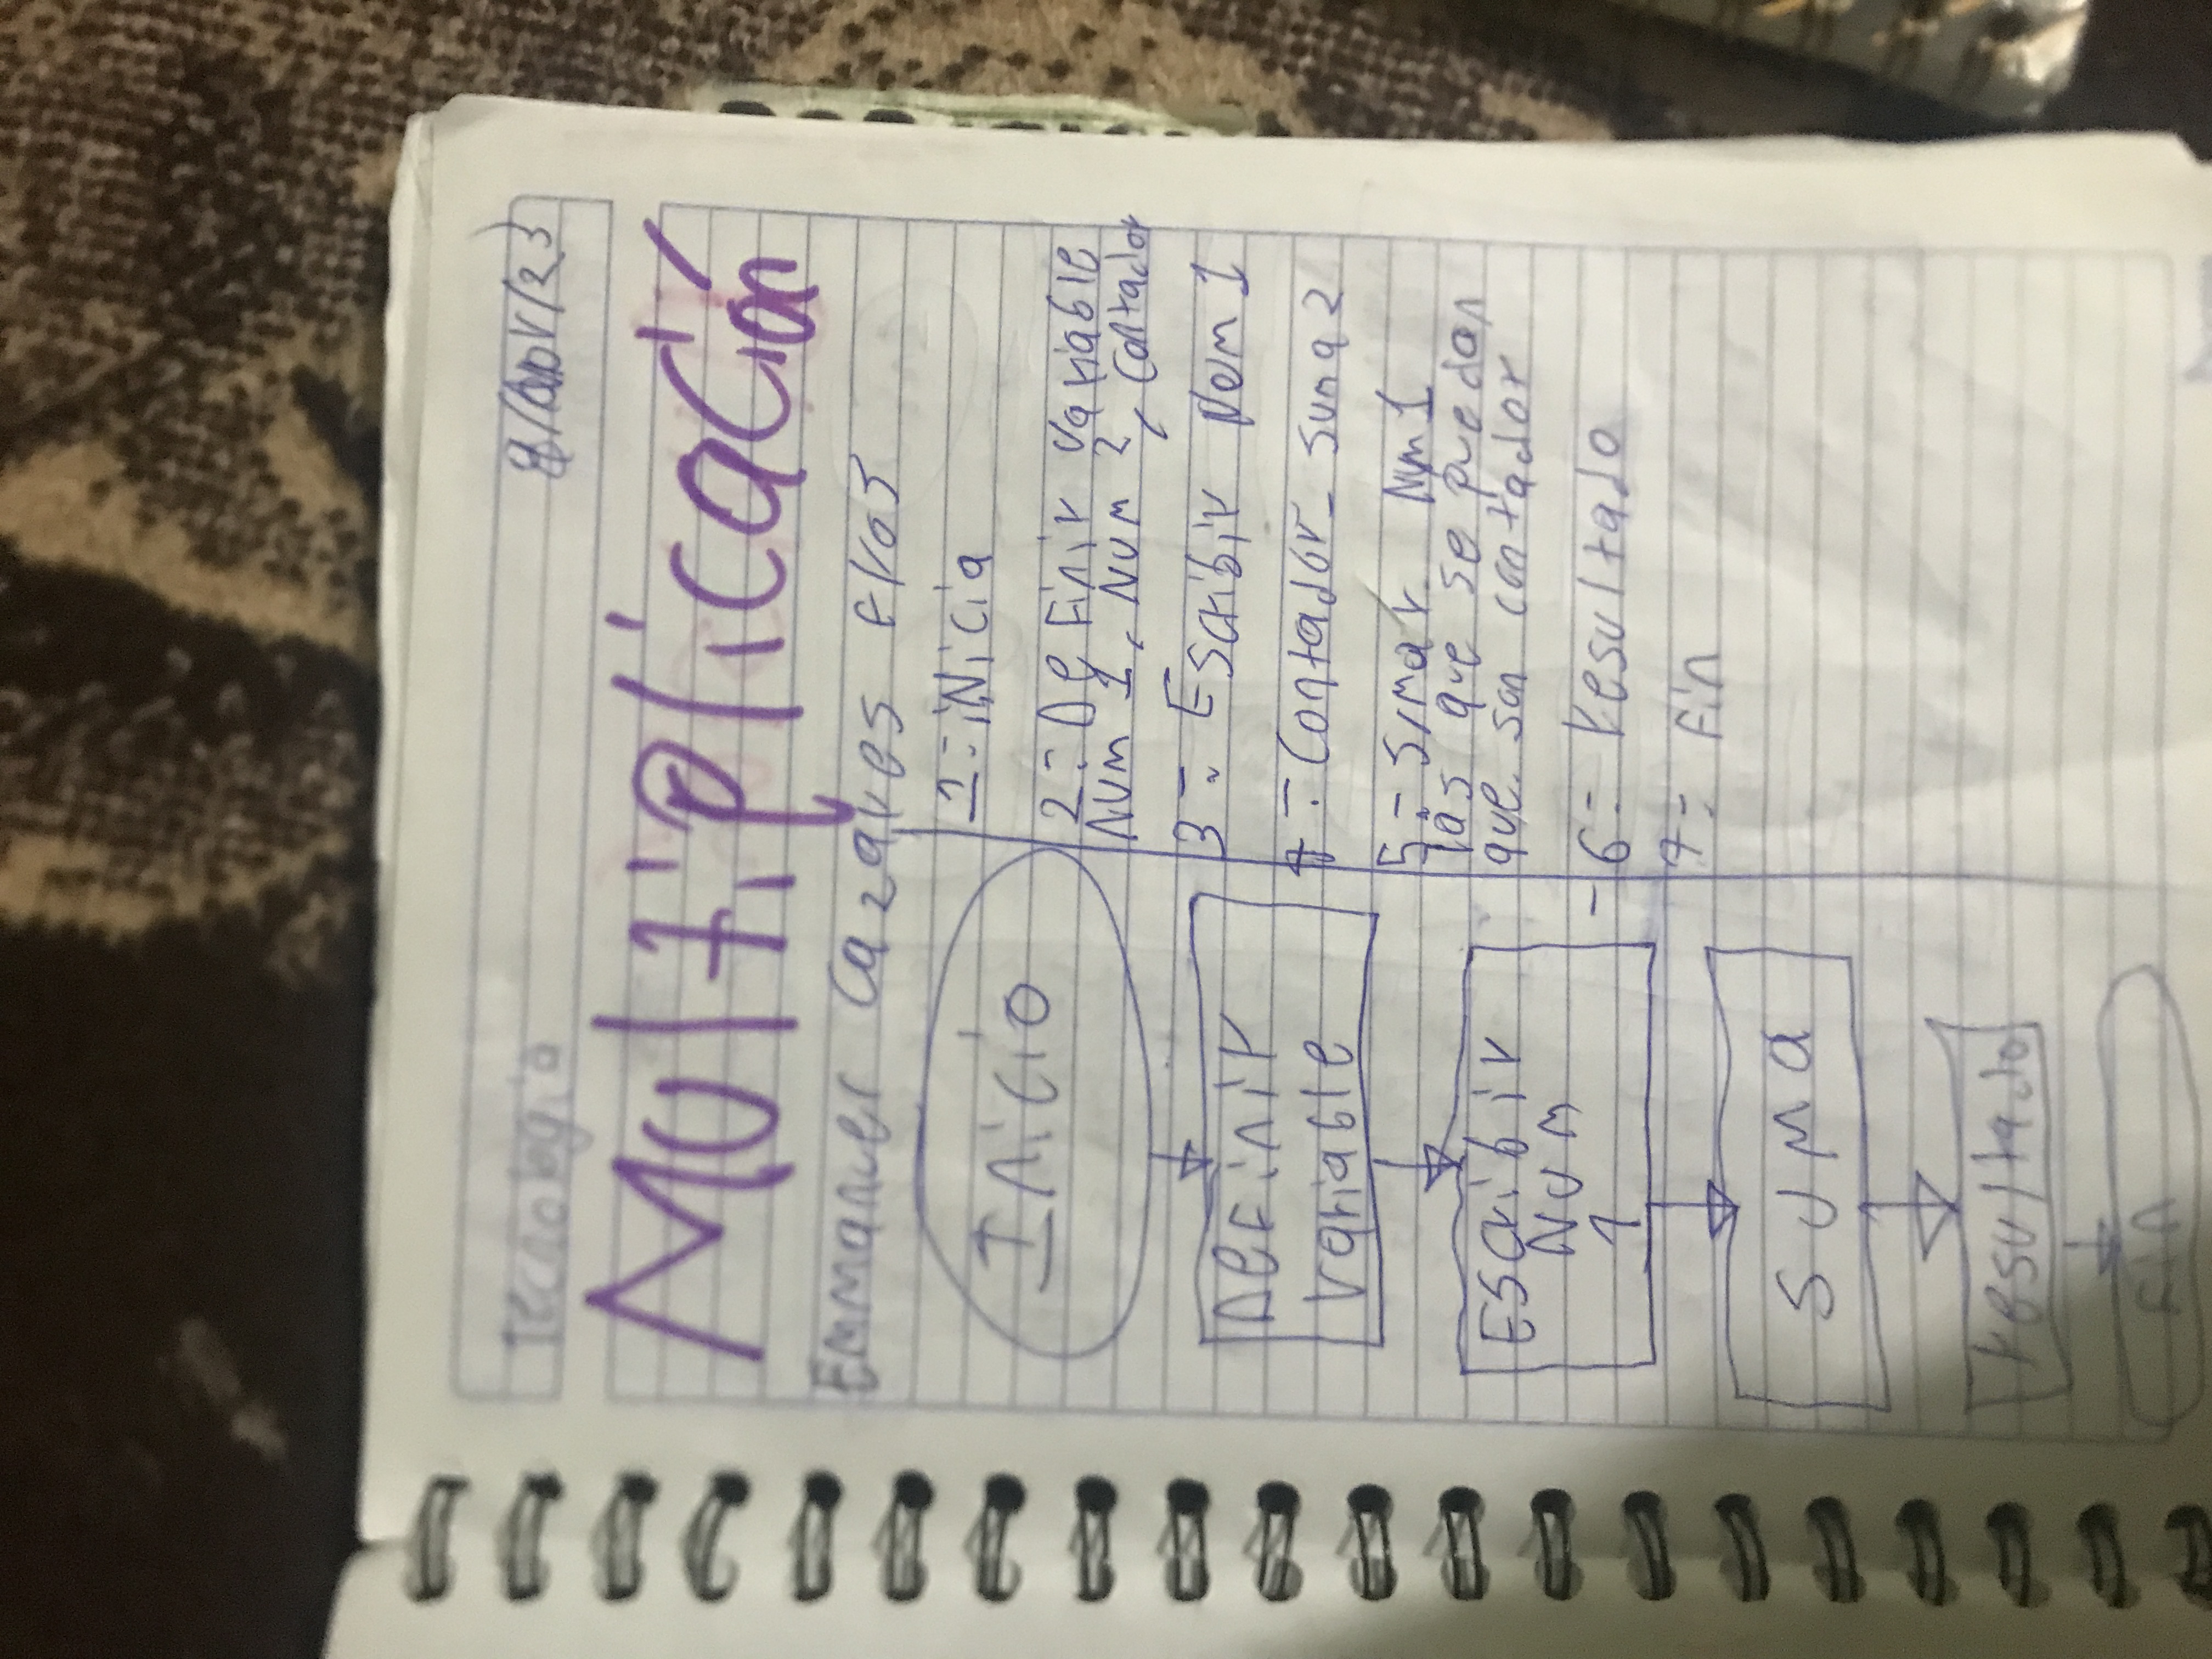 Tecnologia
8/abr/23
Multiplicación
Emmanuel Cazares
1-.iNicia
2-. Definir variable
Num 1, Num 2, Contador
3-. Escribir Num 1
4-. Contador_suma2
5-. Smar Num 1
las que se puedan
que son contador
6-. resultado
7-. Fin
Inicio
Definir
variable
Escribir
Num
1
Suma
resultado
Fin